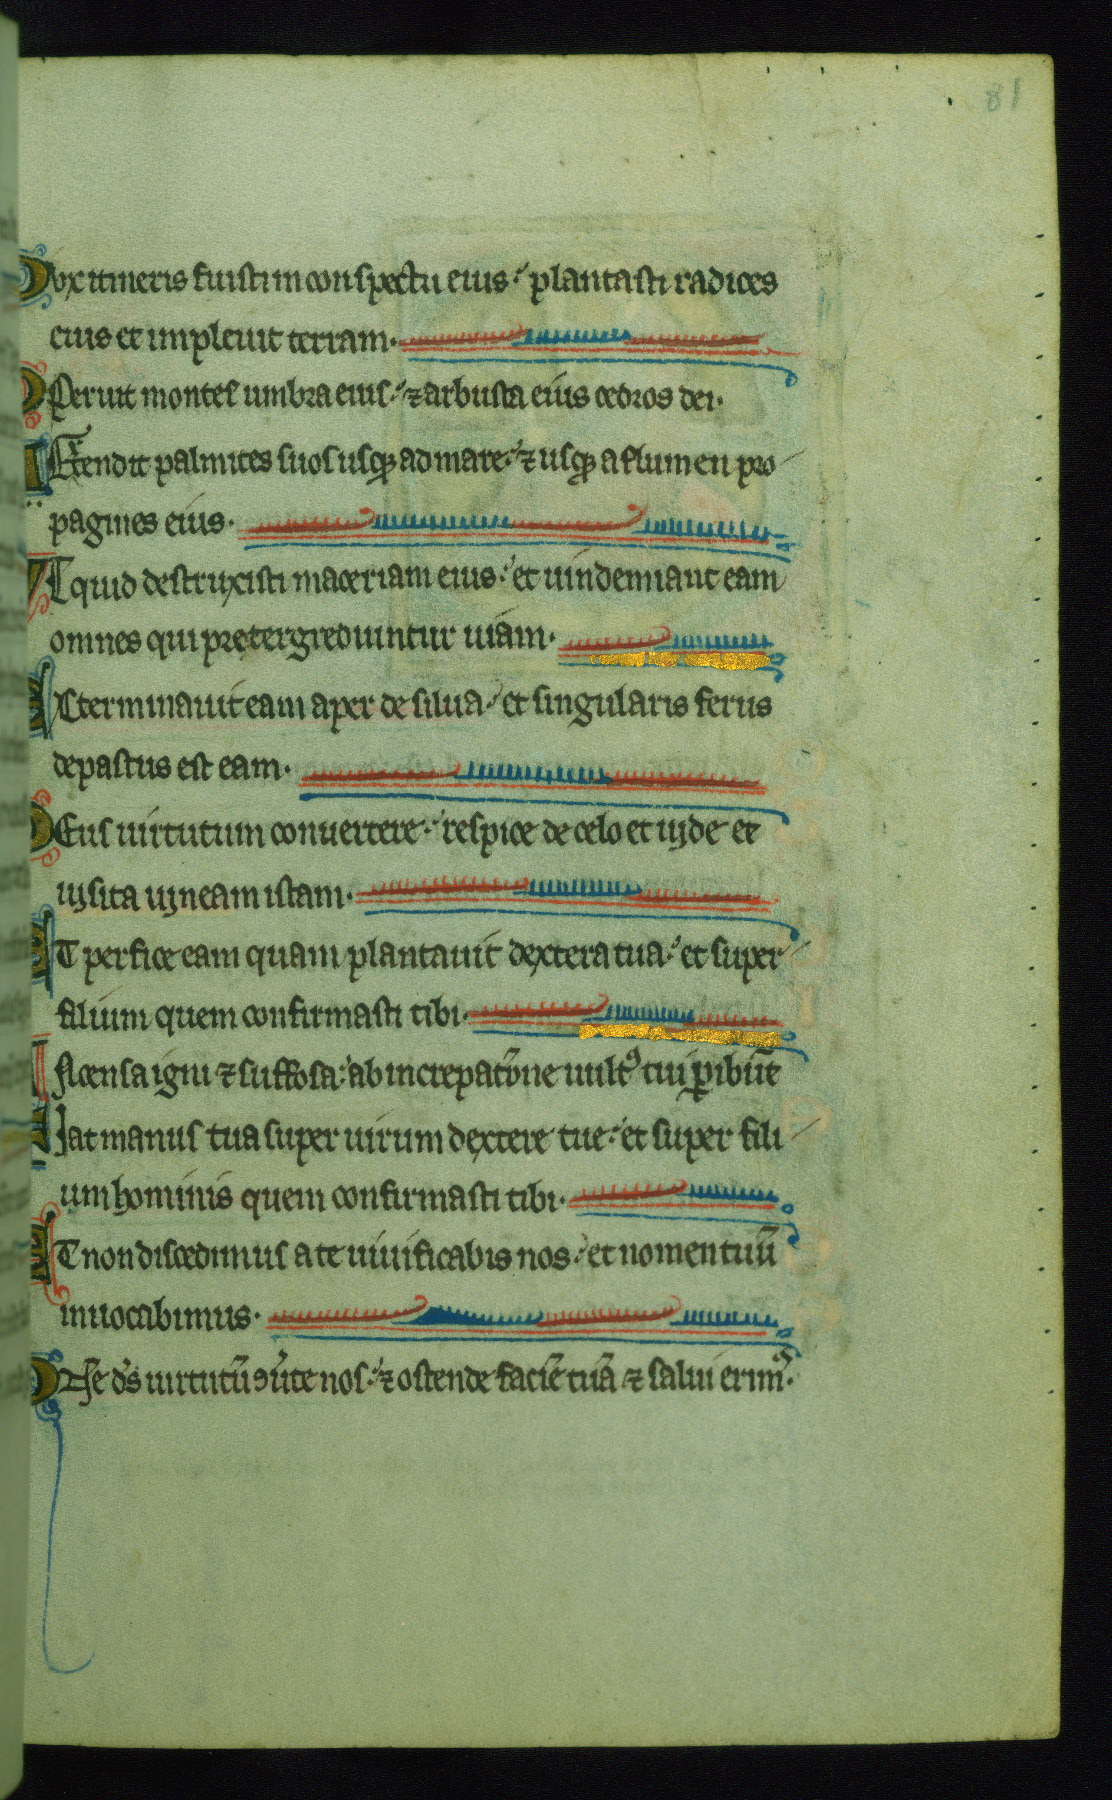 81
Dvx itineris fuisti in conspectu eius: plantasti radices
eius et impleuit terram.
Operuit montes umbra eius: ⁊ arbusta eius cedros dei.
Extendit palmites suos usqꝫ ad mare: ⁊ usqꝫ a flumen pro
pagines eius.
Vt quid destruxisti maceriam eius: et uindemiant eam
omnes qui pretergrediuntur uiam.
Exterminauit eam aper de silua: et singularis ferus
depastus est eam.
Deus uirtutum conuertere: respice de celo et uyde et
uysita uyneam istam.
Et perfice eam quam plantauit dextera tua: et super
filium quem confirmasti tibi.
Incensa igni ⁊ suffosa: ab increpatiōne uultꝰ tui ꝑibūt
Fiat manus tua super uirum dextere tue: et super fili
um hominis quem confirmasti tibi.
Et non discedimus a te uiuificabis nos: et nomen tuū
inuocabimus.
Dn̄e ds̄ uirtutū ꝯuͥte nos: ⁊ ostende faciē tuā ⁊ salui erimꝰ.